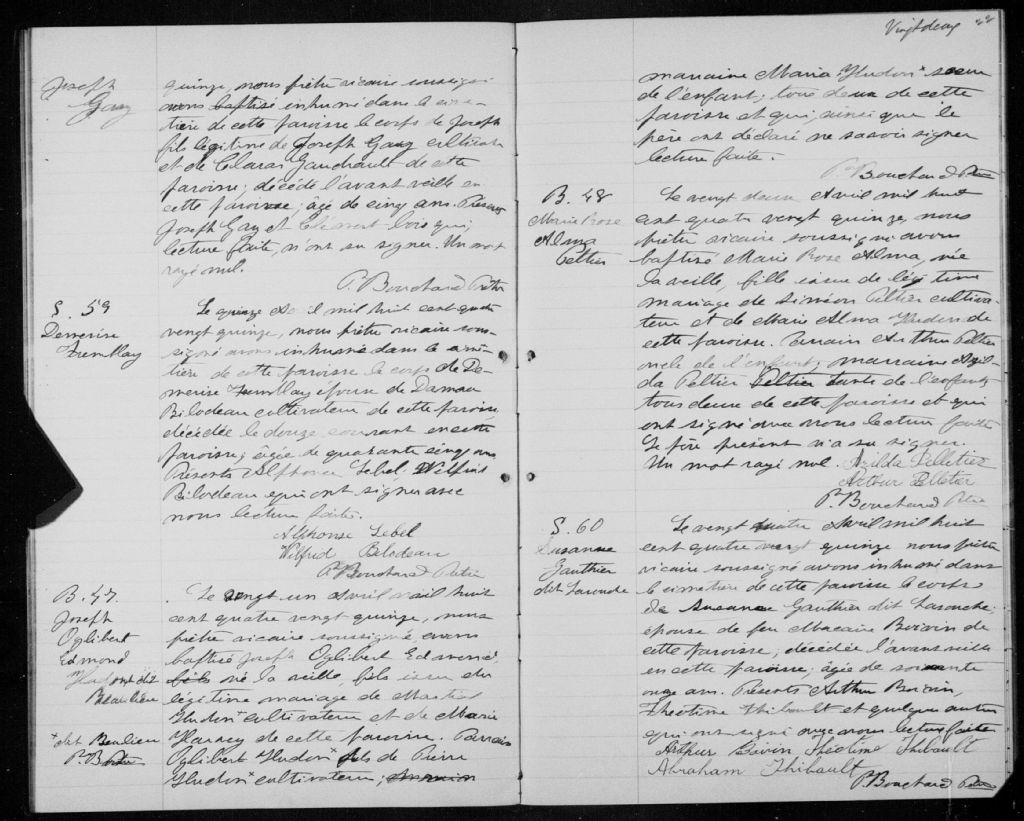 Joseph
Gay
quinze, nous prêtre vicaire soussigné
avons baptisé inhumé dans le cime-
tière de cette paroisse le corps de Joseph
fils légitime de Joseph Gay cultivateur
et de Clara Gaudrault de cette
paroisse; décédé l'avant veille en
cette paroisse; âgé de cinq ans. Présents
Joseph Gay et Clément lois qui,
lecture faite, n'ont su signer. Un mot
rayé nul.
P. Bouchard Ptre
S. 59
Demerise
Tremblay
Le quinze Avril mil huit cent quatre
vingt quinze, nous prêtre vicaire sous-
signé avons inhumé dans le cime-
tière de cette paroisse le corps de De-
merise Tremblay épouse de Damas
Bilodeau cultivateur de cette paroisse
décédée le douze courant en cette
paroisse; âgée de quarante cinq ans
Présents Alphonse Lebel, Wilfrid
Bilodeau qui ont signé avec
nous lecture faite.
Alphonse Lebel
Wilfrid Bilodeau
P. Bouchard Ptre
B. 47.
Joseph
Oglibert
Edmond
Hudon dit
Beaulieu
+ dit Beaulieu
P. B. Ptre
Le vingt un Avril mil huit
cent quatre vingt quinze, nous
prêtre vicaire soussigné, avons
baptisé Joseph Oglibert Edmond,
né la veille, fils issu du
légitime mariage de Martial
Hudon + cultivateur et de Marie
Harvey de cette paroisse. Parrain
Oglibert Hudon + fils de Pierre
Hudon + cultivateur;
Vingt deux 22
marraine Maria Hudon + soeur
de l'enfant; tous deux de cette
paroisse et qui, ainsi que le
père ont déclaré ne savoir signer
lecture faite.
P. Bouchard Ptre
B. 48
Marie Rose
Alma
Peltier
Le vingt deux Avril mil huit
cent quatre vingt quinze, nous
prêtre vicaire soussigné avons
baptisé Marie Rose Alma, née
la veille, fille issue de légitime
mariage de Siméon Peltier cultiva-
teur et de Marie Alma Hudon de
cette paroisse. Parrain Arthur Peltier
oncle de l'enfant; marraine Azil-
da Peltier Peltier tante de l'enfant
tous deux de cette paroisse et qui
ont signé avec nous lecture faite
Le père présent n'a su signer.
Un mot rayé nul. Azilda Pelletier
Arthur Pelletier
P. Bouchard Ptre
S. 60
Susanne
Gauthier
dit Larouche
Le vingt quatre Avril mil huit
cent quatre vingt quinze nous prêtre
vicaire soussigné avons inhumé dans
le cimetière de cette paroisse le corps
de Susanne Gauthier dit Larouche
épouse de feu Macaire Boivin de
cette paroisse; décédée l'avant veille
en cette paroisse; âgée de soixante
onze ans. Présents Arthur Boivin,
Théotime Thibault et quelques autres
qui ont signé avec nous lecture faite
Arthur Boivin Théotime Thibault
Abraham Thibault
P. Bouchard Ptre